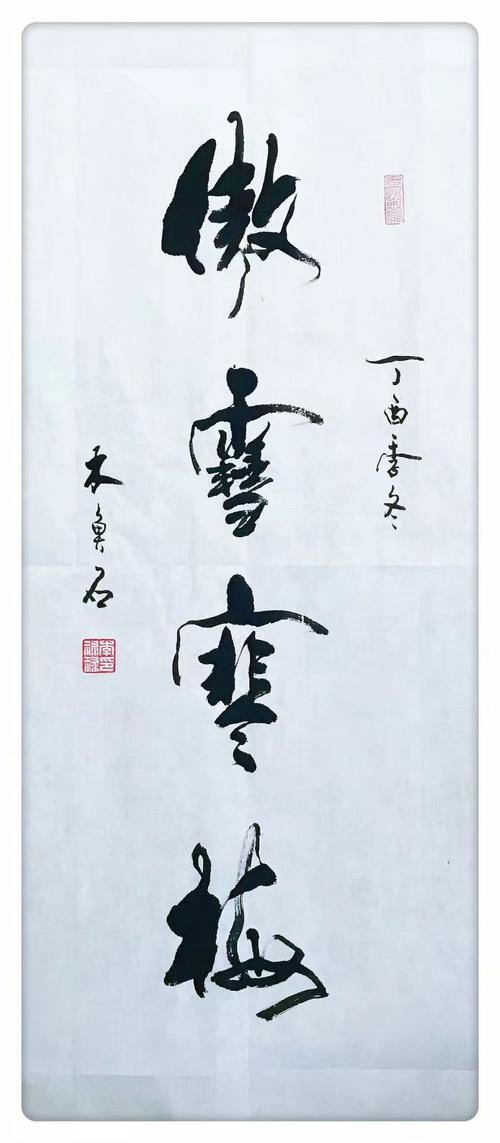 丁酉季冬
傲雪寒梅
木鱼石